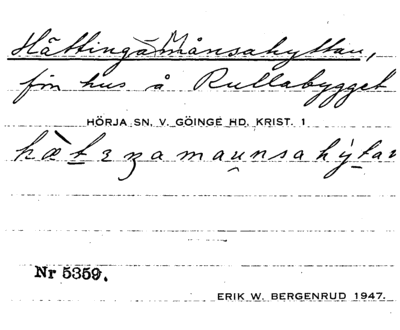 Hättinga-Månsahyttan,
förr hus å Rullabygget
HÖRJA SN. V. GÖINGE HD. KRIST. 1
Nr 5359.
ERIK W. BERGENRUD 1947.